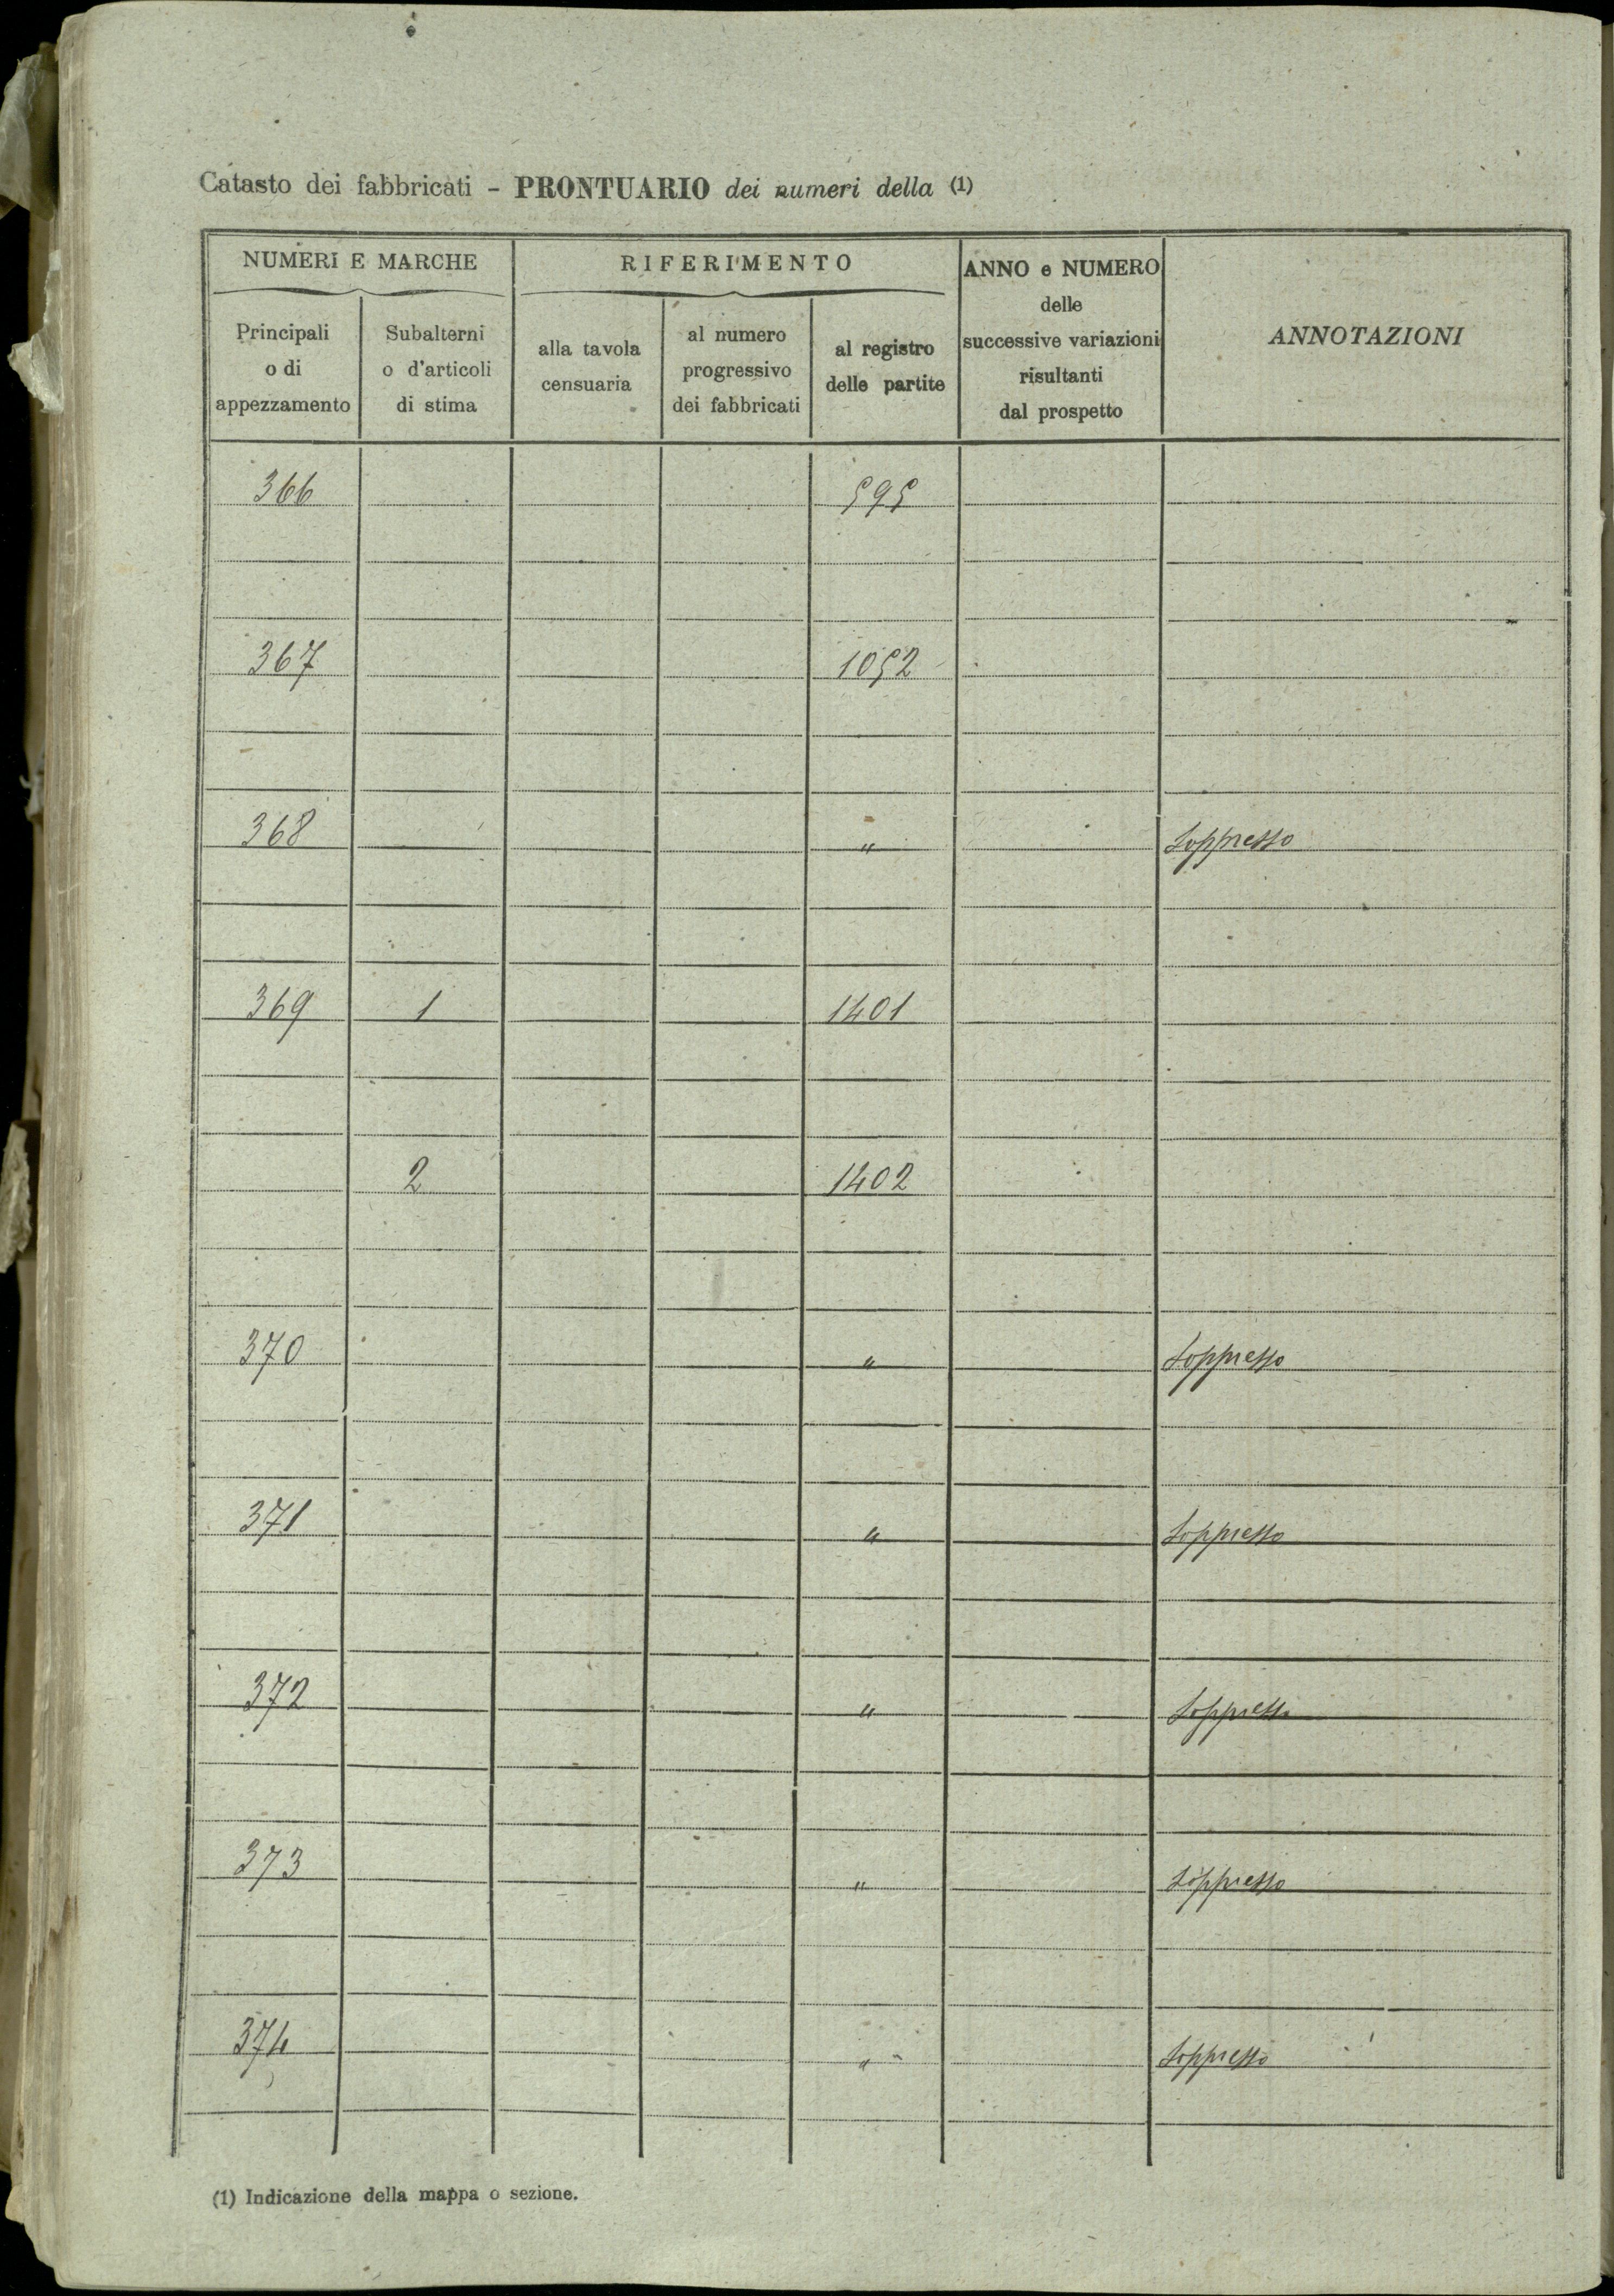 Catasto dei fabbricati - PRONTUARIO dei numeri della (1)
NUMERI E MARCHE
Principali
o di
appezzamento
Subalterni
o d'articoli
di stima
RIFERIMENTO
alla tavola
censuaria
al numero
progressivo
dei fabbricati
al registro
delle partite
ANNO e NUMERO
delle
successive variazioni
risultanti
dal prospetto
ANNOTAZIONI
366 595
367 1052
368 " Soppresso
369 1 1401
2 1402
370 " Soppresso
371 " Soppresso
372 " Soppresso
373 " Soppresso
374 " Soppresso
(1) Indicazione della mappa o sezione.